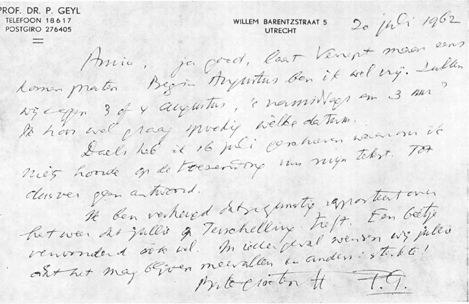 PROF. DR. P. GEYL
TELEFOON 18617
POSTGIRO 276405
WILLEM BARENTZSTRAAT 5
UTRECHT
20 juli 1962
ja goed, laat maar eens
komen praten. Begin Augustus ben ik wel vrij. Zullen
wij zeggen 3 of 4 Augustus, 's namiddags om 3 uur?
Ik hoor wel graag spoedig welke datum.
Daels heb ik 16 juli geschreven waarom ik
niets hoorde op de toezending van mijn tekst. Tot
dusver geen antwoord.
Ik ben verheugd dat ge gunstig rapporteert over
het weer dat jullie op Terschelling treft. Een beetje
verwonderd ook wel. In ieder geval wensen wij jullie
dat het mag blijven meevallen en anders: sterkte!
Beste groeten
P.G.